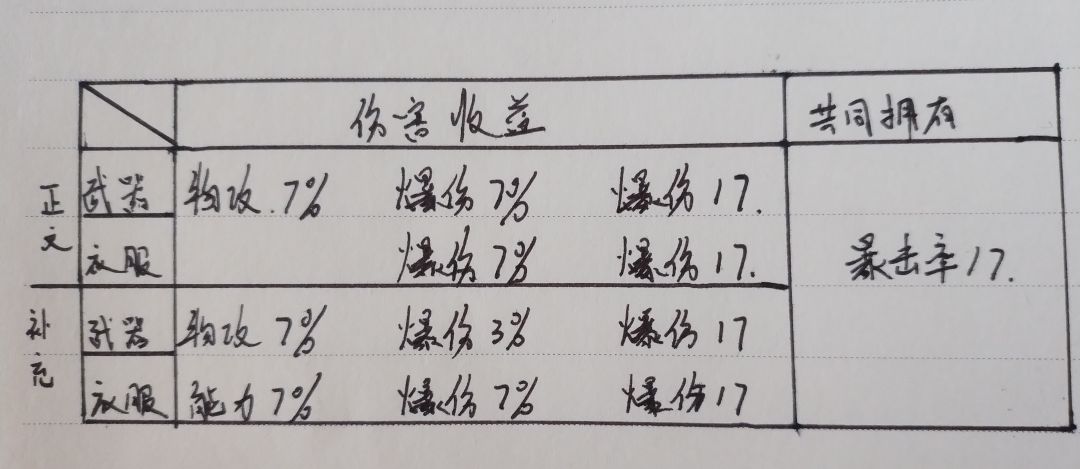 伤害收益 共同拥有
正文 武器 物攻.7% 爆伤7% 爆伤17.
衣服 爆伤7% 爆伤17. 暴击率17.
补充 武器 物攻7% 爆伤3% 爆伤17
衣服 能力7% 爆伤7% 爆伤17